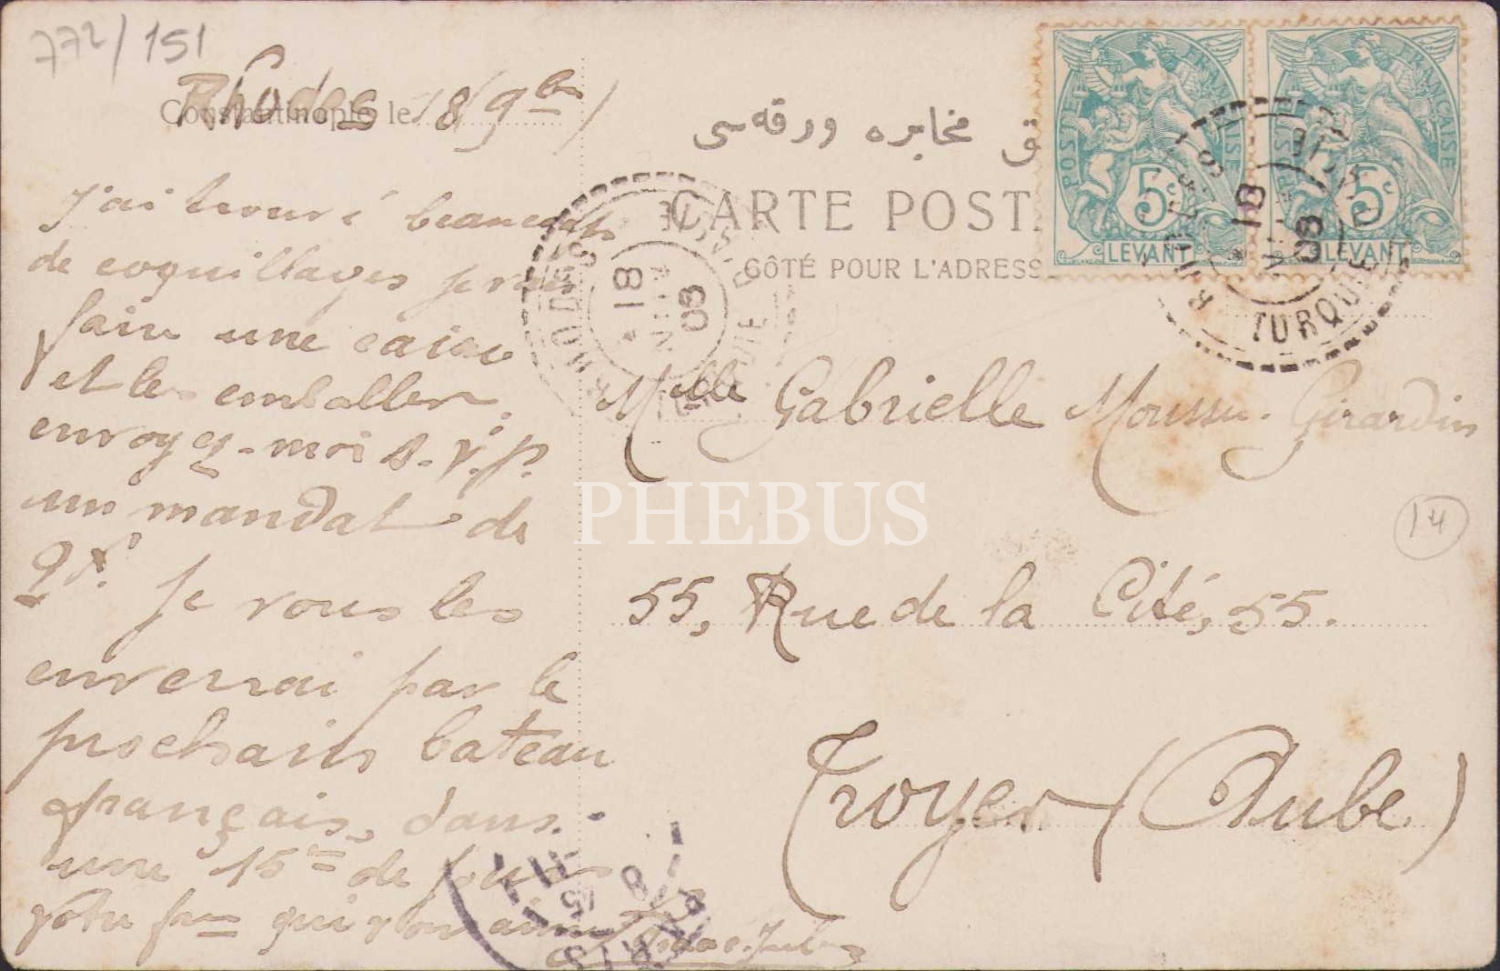 772/151
Rhodes 18/9bre/
Constantinople, le
J'ai trouvé beaucoup
de coquillages pour
faire une caisse
et les emballer.
envoyez-moi s.v.p.
un mandat de
9f. Je vous les
enverrai par le
prochain bateau
français, dans
une 15ne de jours
votre qui vous aime
مخابره ورقه‌سى
CARTE POST
CÔTÉ POUR L'ADRESS
POSTE FRANÇAISE
5c
LEVANT
POSTE FRANÇAISE
5c
LEVANT
RHODES
TURQUIE
18
NOV
08
RHODES
TURQUIE
18
NOV
08
Melle Gabrielle Moussu-Girardin
14
55, Rue de la Cité, 55.
Troyes (Aube)
PHEBUS